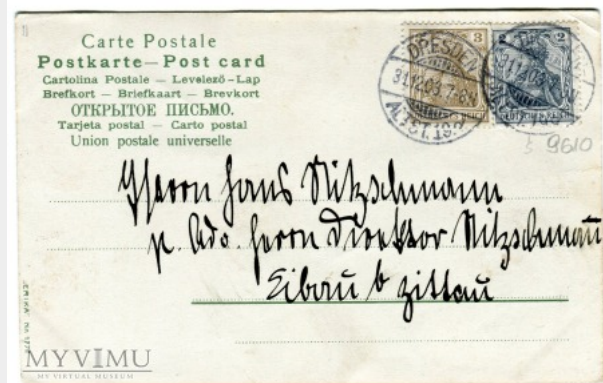 Carte Postale
Postkarte—Post card
Cartolina Postale — Levelező-Lap
Brefkort — Briefkaart — Brevkort
ОТКРЫТОЕ ПИСЬМО.
Tarjeta postal — Carto postal
Union postale universelle
3
2
DRESDEN
31.12.03. 7-8N
ALTST. 19
DEUTSCHES REICH
9610
Herrn Hans Nitzschmann
p. Adr. Herrn Direktor Nitzschmann
Eibau b Zittau
MYVIMU
MY VIRTUAL MUSEUM